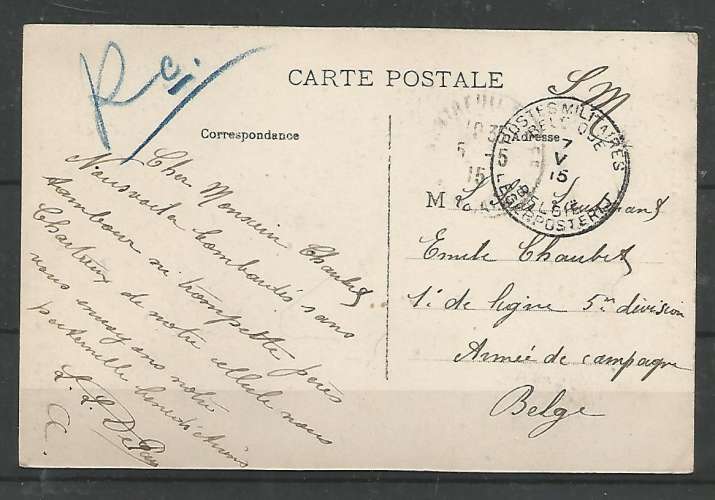 R c.
CARTE POSTALE
S M
Correspondance
Adresse
POSTES MILITAIRES
BELGIQUE
7
V
15
BELGIE
LEGERPOSTERIJ
Cher Monsieur Chaubet
Nous voilà bombardés sans
tambour ni trompette
Chartreux de notre cellule nous
vous envoyons notre
paternelle
M Le Lieutenant
Emile Chaubet
1r de ligne 5me division
Armée de campagne
Belge